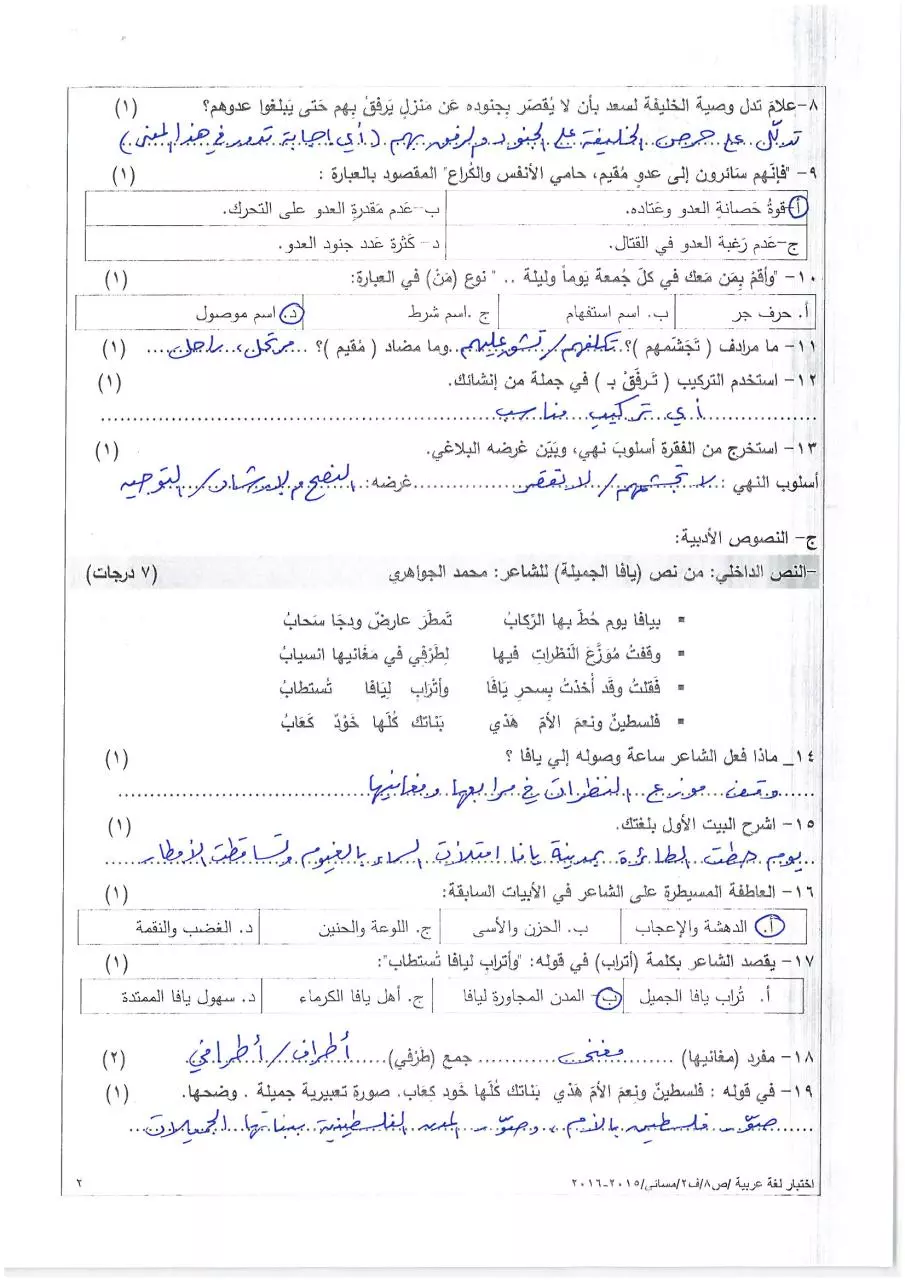 ٨- علامَ تدل وصية الخليفة لسعد بأن لا يُقصَر بِجنوده عَن مَنزلٍ يَرفقُ بِهم حَتى يَبلغوا عدوهم؟ (١)
تدلّ على حرص الخليفة على الجنود والرفق بهم (أي إجابة تدور في هذا المعنى)
٩- "فإنَهم سَائرون إلى عدوٍ مُقيم، حامي الأنفس والكُراع" المقصود بالعبارة : (١)
أ- قوةُ حَصانةِ العدو وعَتاده. ب- عَدم مَقدرةِ العدو على التحرك.
ج- عَدم رَغبة العدو في القتال. د- كَثرة عَدد جنود العدو.
١٠- "وأقمْ بِمَن مَعك في كلَ جُمعة يَوماً وليلة .. " نوع (مَنْ) في العبارة: (١)
أ. حرف جر ب. اسم استفهام ج .اسم شرط د. اسم موصول
١١- ما مرادف ( تَجَشمهم )؟ تكلفهم / تشق عليهم وما مضاد ( مُقيم )؟ مرتحل، راحل (١)
١٢- استخدم التركيب ( تَرفَقْ بـ ) في جملة من إنشائك. (١)
أي تركيب مناسب
١٣- استخرج من الفقرة أسلوبَ نهي، وبَيَن غرضه البلاغي. (١)
أسلوب النهي : لا تجشمهم / لا تقصر غرضه: النصح والإرشاد / التوجيه
ج- النصوص الأدبية:
-النص الداخلي: من نص (يافا الجميلة) للشاعر: محمد الجواهري (٧ درجات)
▪ بيافا يوم حُطَ بها الرّكابُ تَمطَرَ عارضٌ ودجَا سَحابُ
▪ وقفتُ مُوزَّعَ النَظراتِ فيها لِطَرْفِي في مَغَانيها انسيابُ
▪ فَقلتُ وقَد أُخذتُ بِسحرِ يَافَا وأتْرابٍ لِيَافا تُستطابُ
▪ فلسطينُ ونعمَ الأمَ هَذي بَناتك كُلَها خَودٌ كَعَابُ
١٤_ ماذا فعل الشاعر ساعة وصوله إلي يافا ؟ (١)
وقف موزع النظرات في مرابعها ومغانيها
١٥- اشرح البيت الأول بلغتك. (١)
يوم حطت الطائرة بمدينة يافا امتلأت السماء بالغيوم وتساقطت الأمطار
١٦- العاطفة المسيطرة على الشاعر في الأبيات السابقة: (١)
أ. الدهشة والإعجاب ب. الحزن والأسى ج. اللوعة والحنين د. الغضب والنقمة
١٧- يقصد الشاعر بكلمة (أتراب) في قوله: "وأتراب ليافا تُستطاب": (١)
أ. تُراب يافا الجميل ب- المدن المجاورة ليافا ج. أهل يافا الكرماء د. سهول يافا الممتدة
١٨- مفرد (مغانيها) مغنى جمع (طَرْفي) أطراف / أطرافي (٢)
١٩- في قوله : فلسطينُ ونعِمَ الأمَ هَذي بَناتك كُلَها خَود كعَاب. صورة تعبيرية جميلة . وضحها. (١)
صوّر فلسطين بالأم، وصوّر المدن الفلسطينية ببناتها الجميلات
اختبار لغة عربية /ص٨/ف٢/مسائي/٢٠١٥-٢٠١٦ ٢